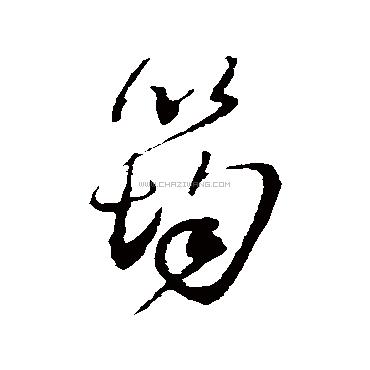 筠
WWW.CHAZIWANG.COM